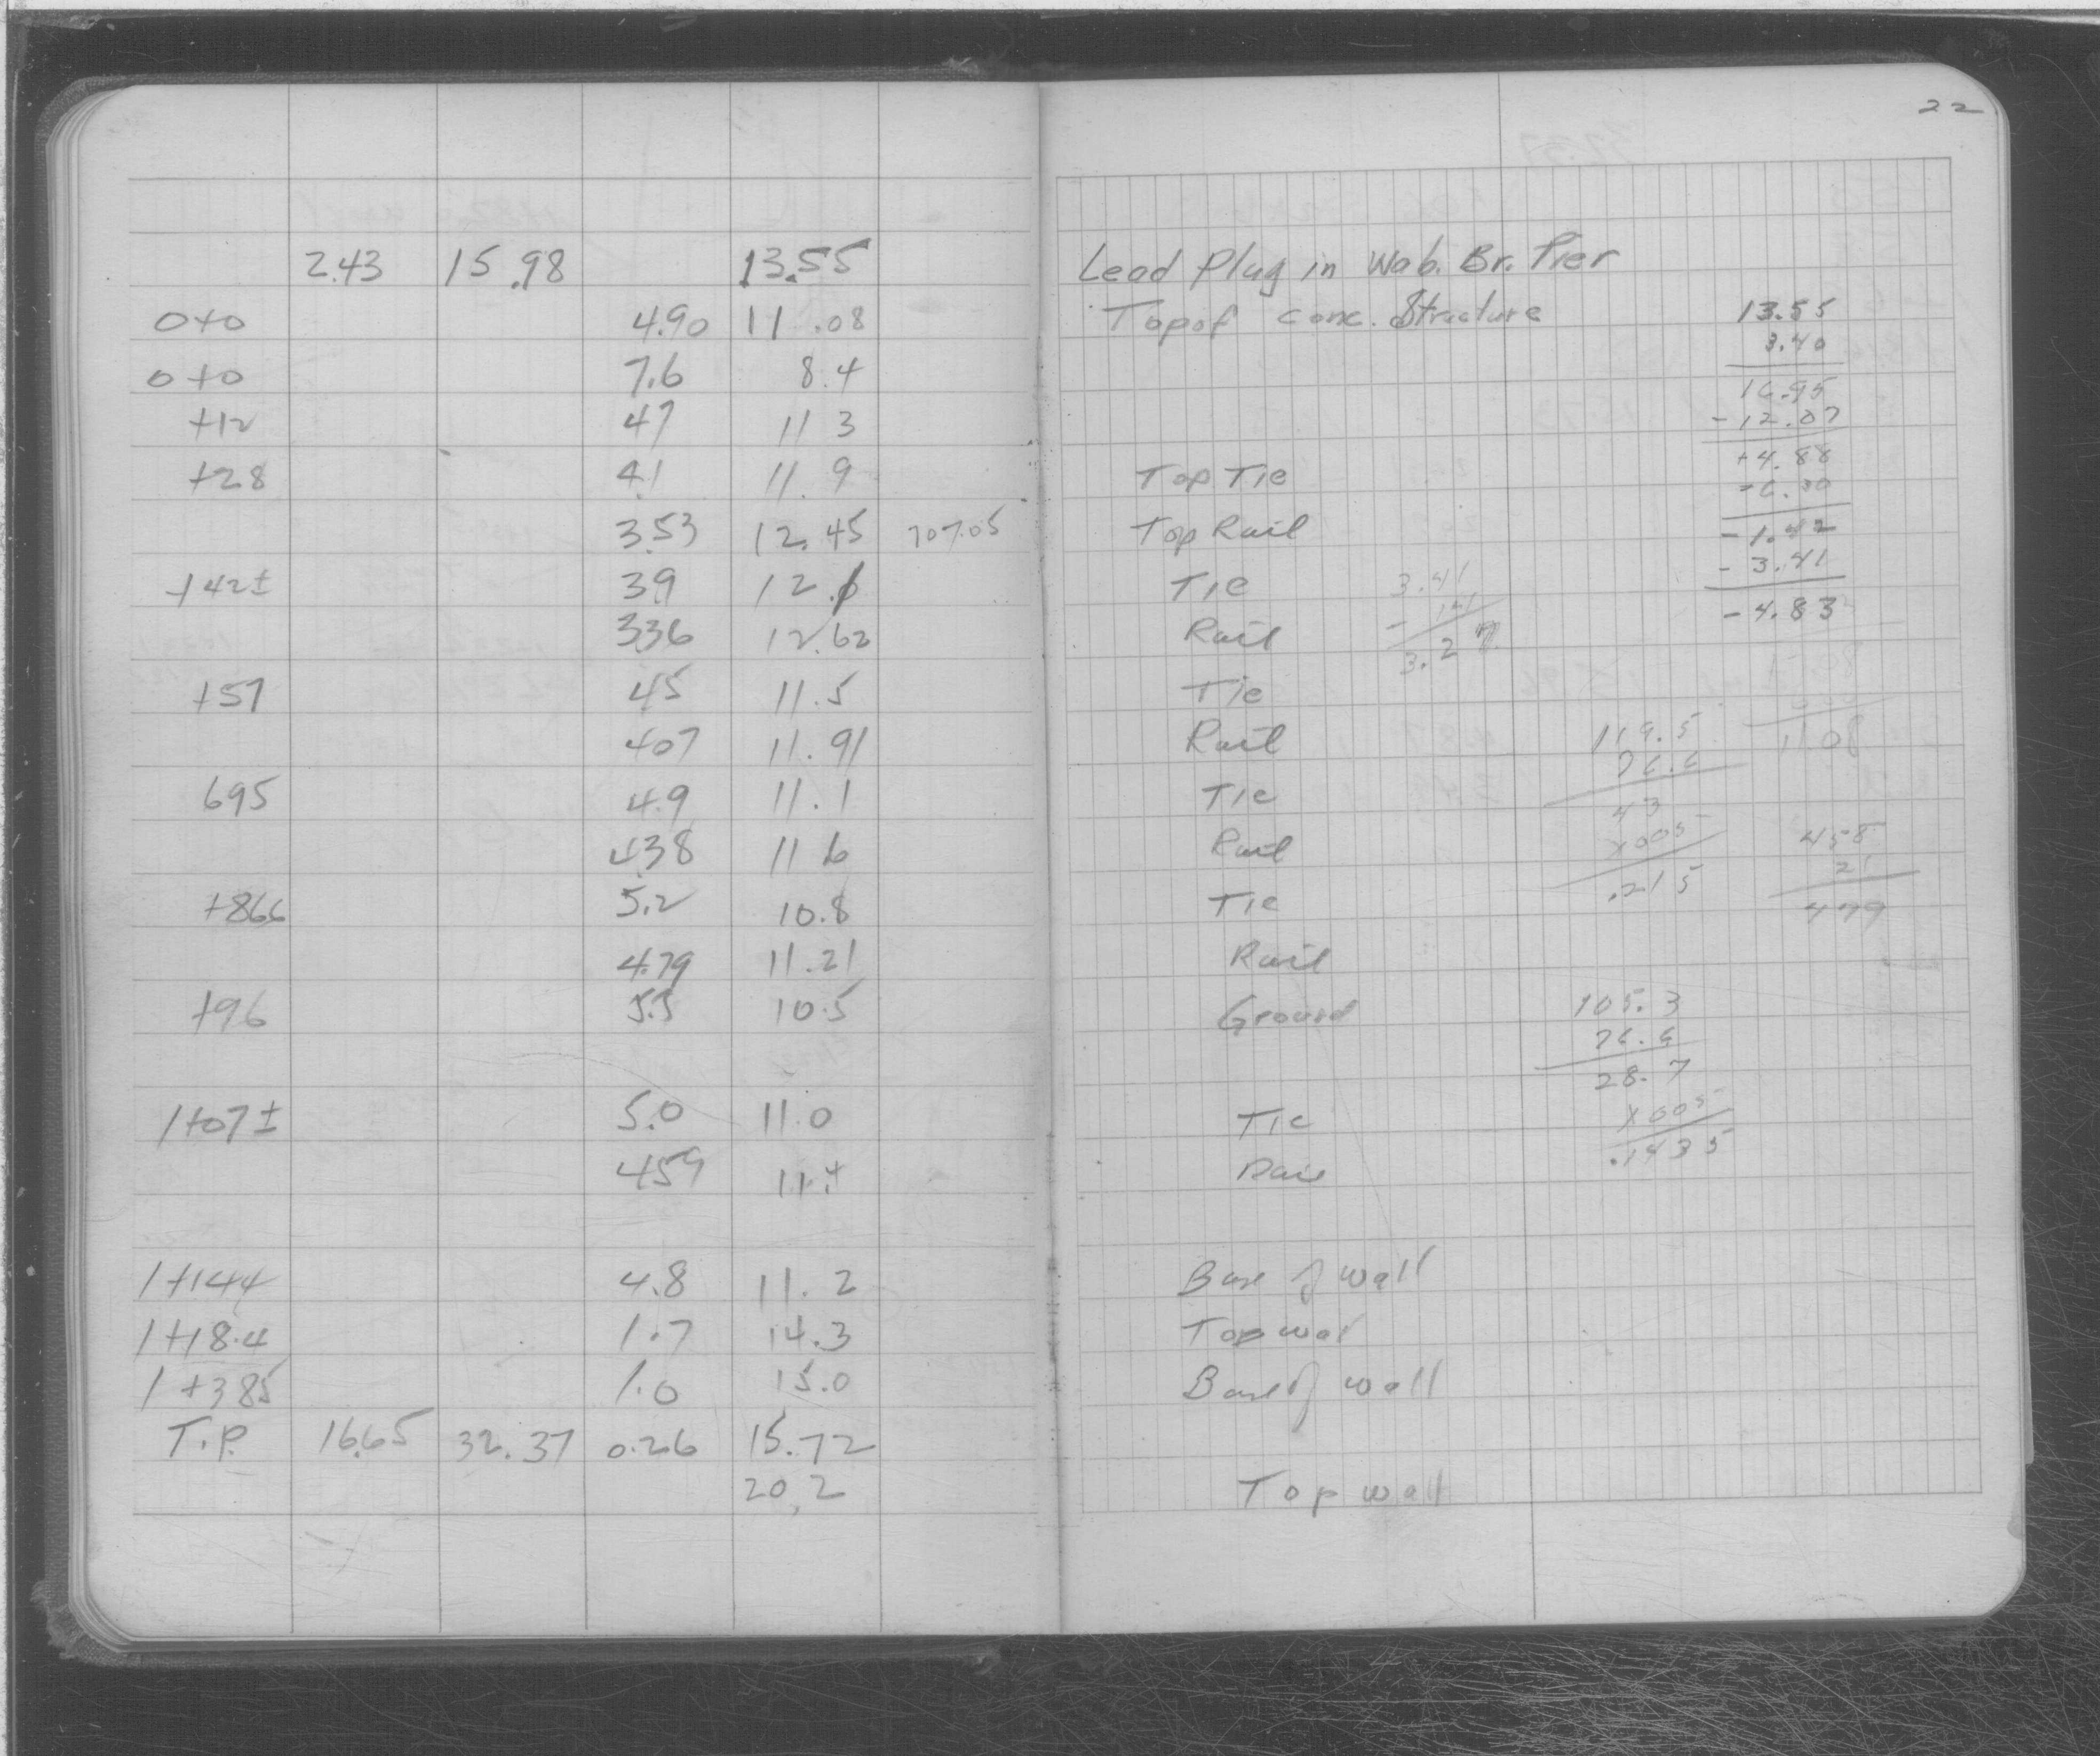 22
2.43 15.98 13.55 Lead Plug in Wab. Br. Pier
0+0 4.90 11.08 Top of conc. Structure
0+0 7.6 8.4
+12 47 11 3
+28 4.1 11.9 Top Tie
3.53 12.45 707.05 Top Rail
+42± 39 12. Tie
336 12.62 Rail
+57 45 11.5 Tie
407 11.91 Rail
695 4.9 11.1 Tie
4.38 11 6 Rail
+866 5.2 10.8 Tie
4.79 11.21 Rail
+96 5.5 10.5 Ground
1+07± 5.0 11.0 Tie
459 11.4 Rail
1+144 4.8 11.2 Base of wall
1+18.4 1.7 14.3 Top wal
1+385 1.0 15.0 Base of wall
T.P. 16.65 32.37 0.26 15.72
20.2 Top wall
13.55
3.40
16.95
-12.07
+4.88
-6.30
-1.42
-3.41
-4.83
3.41
- 141
3.27
119.5
76.6
43
x005
.215
11.08
458
21
479
105.3
76.6
28.7
x005
.1435